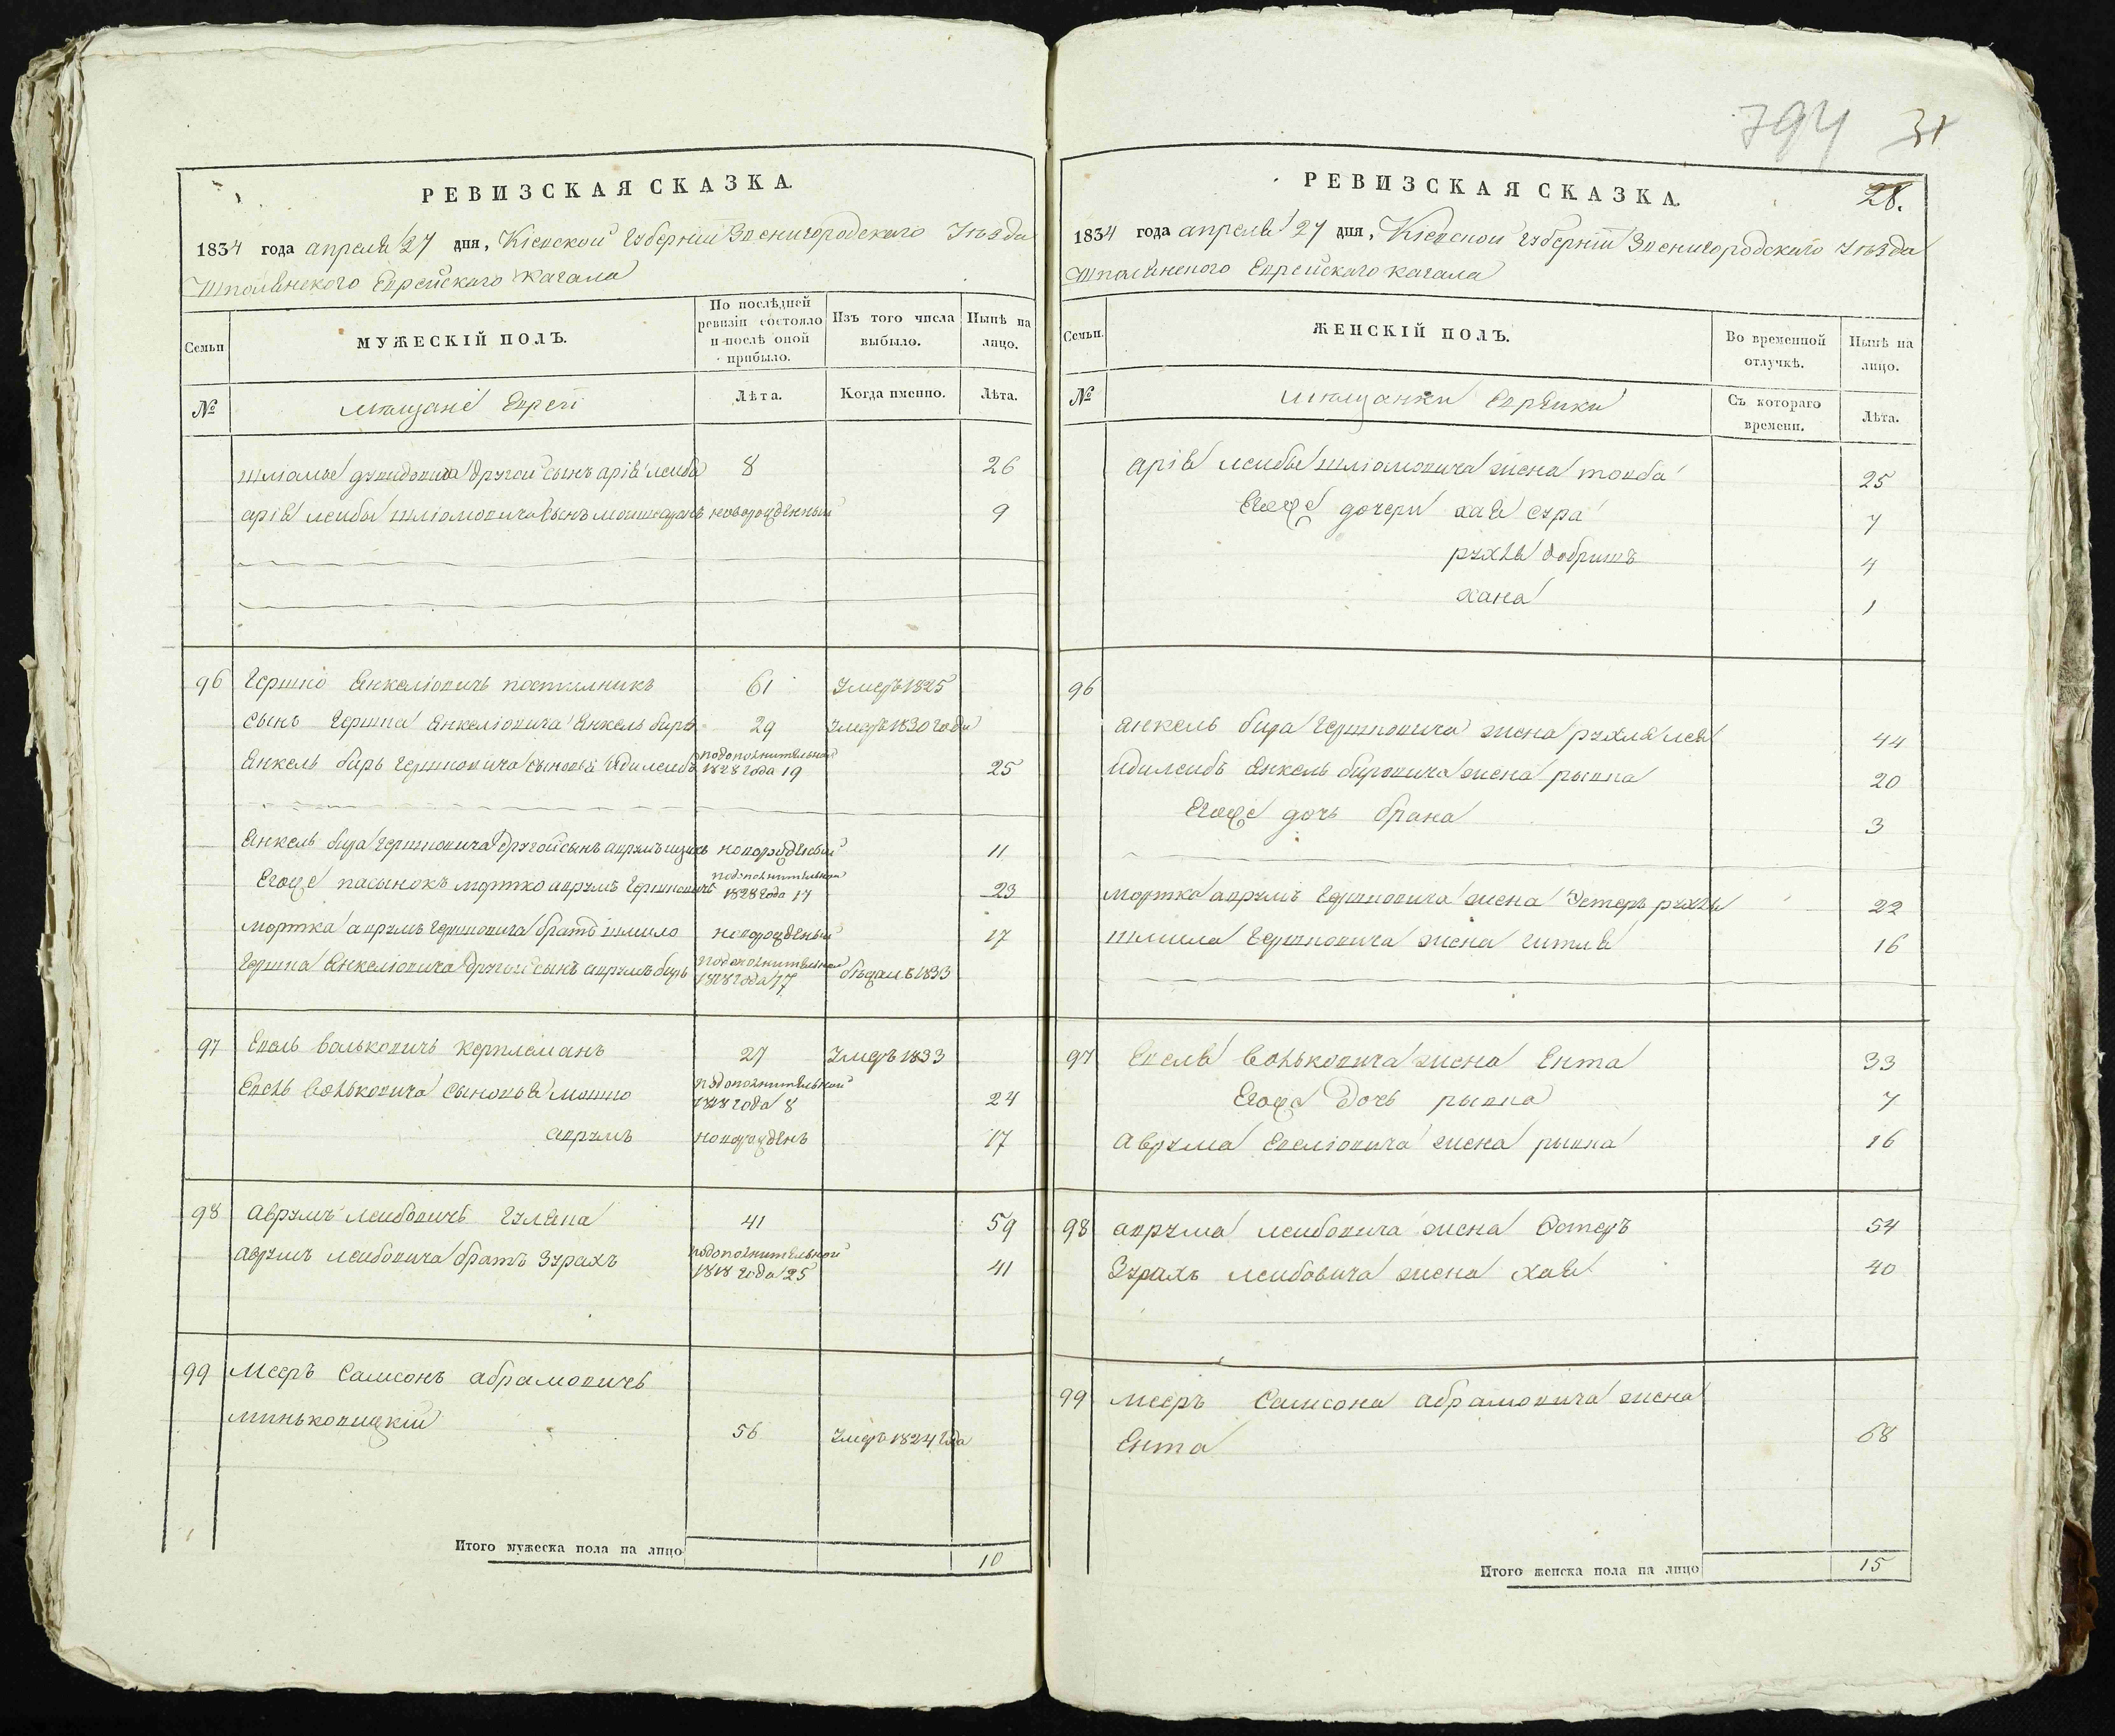 794 31
РЕВИЗСКАЯ СКАЗКА.
1834 года апреля 27 дня, Кіевской Губерніи Звенигородскаго Уѣзда
Шполянского Еврейскаго Кагала
Семьи
МУЖЕСКІЙ ПОЛЪ.
По послѣдней ревизіи состояло и послѣ оной прибыло.
Изъ того числа выбыло.
Нынѣ на лицо.
№
мещане Евреи
Лѣта.
Когда именно.
Лѣта.
Шлиомы другой сынъ арія лейба 8 26
арія лейбы шліомовича сынъ новорожденный 9
96 Гершко Янкеліовичь 61 Умеръ 1825
сынъ Гершка Янкеліовича Янкель бирь 29 Умеръ 1830 года
Янкель бирь Гершковича сыновья Идилейбъ подополнительной 1828 года 19 25
Янкель бира Гершковича другой сынъ аврумъ новорожденый 11
Егоже пасынокъ мортко аврумъ Гершковичь подополнительной 1828 года 17 23
мортка аврумъ Гершковича братъ шмило новорожденый 17
Гершка Янкеліовича другой сынъ аврумъ бирь подополнительной 1818 года 17 1833
97 Евель Вольковичь 27 Умеръ 1833
Евель Вольковича сыновья мошко подополнительной 1818 года 8 24
аврумъ новорожденъ 17
98 Аврумъ лейбовичь Гуляна 41 59
Аврумъ лейбовича братъ Зурахъ подополнительной 1818 года 25 41
99 Мееръ Самсонъ абрамовичь
миньковицкій 56 Умеръ 1824 года
Итого мужеска пола на лицо 10
РЕВИЗСКАЯ СКАЗКА. 28.
1834 года апреля 27 дня, Кіевской Губерніи Звенигородскаго Уѣзда
Шполянского Еврейскаго кагала
Семьи.
ЖЕНСКІЙ ПОЛЪ.
Во временной отлучкѣ.
Нынѣ на лицо.
№
мещанки Еврейки
Съ котораго времени.
Лѣта.
арія лейбы шліомовича жена товба 25
Егоже дочери хая сура 7
рухля добришъ 4
хана 1
96
Янкель бира Гершковича жена рухля лея 44
Идилейбъ Янкель бировича жена рывка 20
Егоже дочь брана 3
мортка аврумъ Гершковича жена Эстеръ рухля 22
шмила Гершковича жена гитля 16
97 Евеля Вольковича жена Ента 33
Егоже Дочь рывка 7
Аврума Евеліовича жена рывка 16
98 аврума лейбовича жена Естеръ 54
Зурахъ лейбовича жена хая 40
99 мееръ Самсона абрамовича жена
Ента 68
Итого женска пола на лицо 15